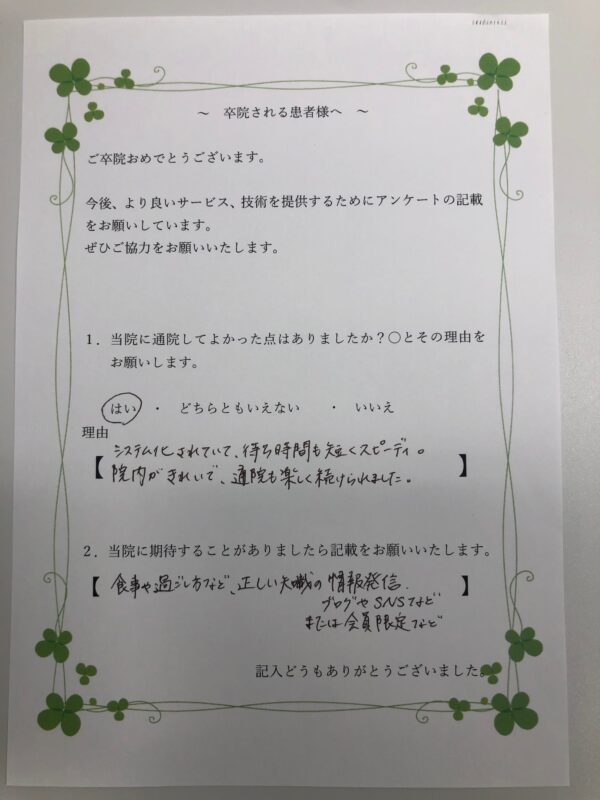 ～ 卒院される患者様へ ～
ご卒院おめでとうございます。
今後、より良いサービス、技術を提供するためにアンケートの記載
をお願いしています。
ぜひご協力をお願いいたします。
1．当院に通院してよかった点はありましたか？○とその理由を
お願いします。
はい ・ どちらともいえない ・ いいえ
理由
システム化されていて、待ち時間も短くスピーディ。
【院内がきれいで、通院も楽しく続けられました。】
2．当院に期待することがありましたら記載をお願いいたします。
【食事や過ごし方など、正しい知識の情報発信、】
ブログやSNSなど
または会員限定など
記入どうもありがとうございました。